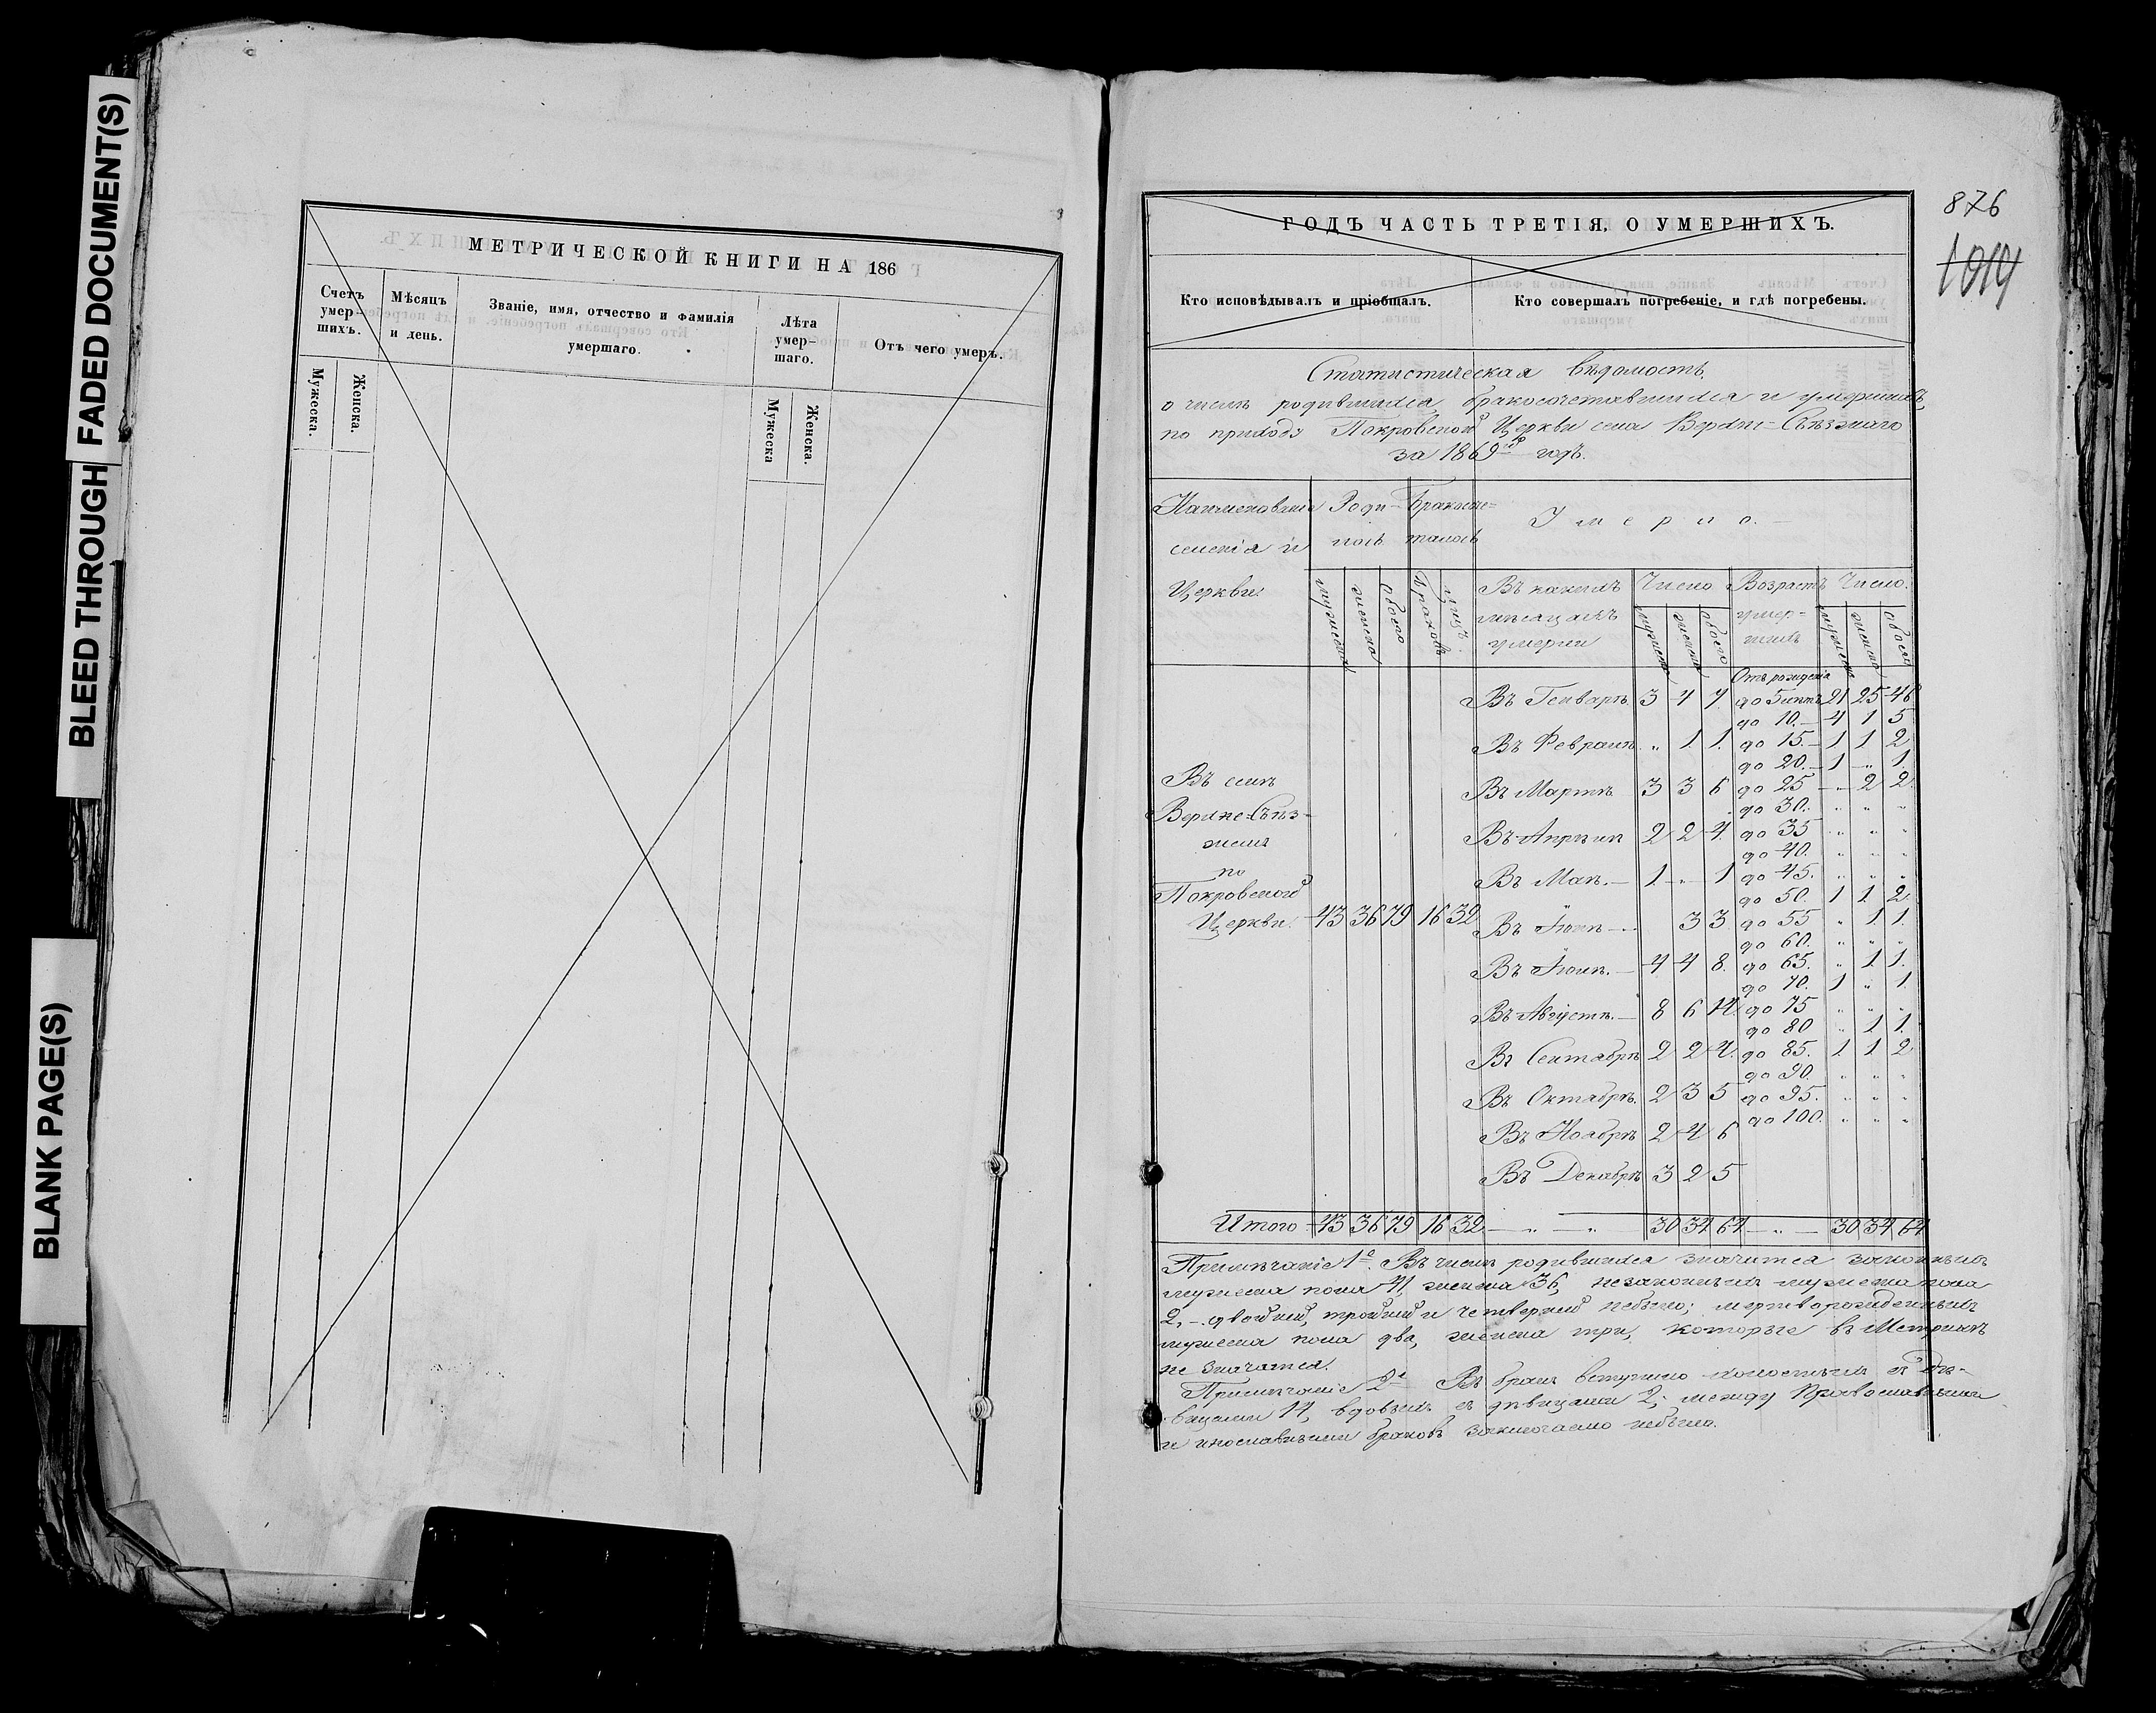 BLEED THROUGH FADED DOCUMENT(S)
BLANK PAGE(S)
МЕТРИЧЕСКОЙ КНИГИ НА 186
Счетъ умер-шихъ.
Мѣсяцъ и день.
Званіе, имя, отчество и фамилія умершаго.
Лѣта умер-шаго.
Отъ чего умеръ.
Мужеска.
Женска.
Мужеска
Женска.
876
1019
ГОДЪ ЧАСТЬ ТРЕТІЯ, О УМЕРШИХЪ.
Кто исповѣдывалъ и пріобщалъ.
Кто совершалъ погребеніе, и гдѣ погребены.
Статистическая вѣдомость,
о числѣ родившихся, бракосочетавшихся и умершихъ,
по приходу Покровской Церкви села Верхне-Съѣзжаго
за 1869й годъ.
Наименованіе Роди- Бракосоче-
селенія и лось талось
Умерло.
Церкви
мужеска женска обоего Браковъ лицъ
Въ какихъ мѣсяцахъ умерли
Число
мужеска женска обоего
Возрастъ умер-шихъ
Число.
мужеска женска обоего
Отъ рожденія
Въ Генварѣ. 3 4 7 до 5 лѣтъ 21 25 46
до 10. 4 1 5
Въ Февралѣ. „ 1 1. до 15. 1 1 2
до 20. 1 „ 1.
Въ Мартѣ 3 3 6 до 25 „ 2 2.
до 30. „ „ „
Въ Апрѣлѣ 2 2 4. до 35 „ „ „
до 40. „ „ „
Въ Маѣ. 1. „ 1 до 45. „ „ „
до 50. 1 1 2
Въ селѣ
Верхне-Съѣз-
жемъ
по
Покровской
Церкви. 43 36 79 16 32
Въ Іюнѣ 3 3 до 55 „ 1 1.
до 60. „ „ „
Въ Іюлѣ. 4 4 8. до 65. „ 1 1.
до 70. 1 „ 1.
Въ Августѣ. 8 6 14 до 75 „ „ „
до 80 „ 1 1.
Въ Сентябрѣ 2 2 4. до 85. 1 1 2
до 90. „ „ „
Въ Октябрѣ. 2 3 5 до 95. „ „ „
до 100. „ „ „
Въ Ноябрѣ 2 4 6
Въ Декабрѣ 3 2 5
Итого 43 36 79 16 32 „ „ 30 34 64 „ 30 34 64
Примѣчаніе 1е. Въ числѣ родившихся значится законныхъ
мужеска пола 41, женска 36, незаконныхъ мужеска пола
2, - двойней, тройней и четверней небыло; мертворожденныхъ
мужеска пола два, женска три, которые въ Метрикѣ
не значатся.
Примѣчаніе 2е Въ бракъ вступило холостыхъ съ дѣ-
вицами 14, вдовыхъ съ дѣвицами 2; между Православными
и инославными браковъ заключаемо небыло.